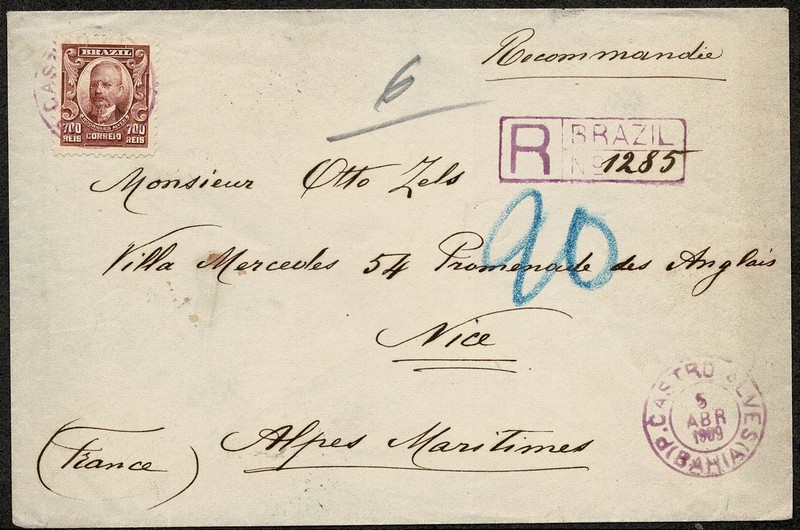 CAS
BRAZIL
700 700
REIS CORREIO REIS
6
Recommandée
R BRAZIL
No 1285
Monsieur Otto Zels
90
Villa Mercedes 54 Promenade des Anglais
Nice
Alpes Maritimes
(France)
P. CASTRO ALVES
5
ABR
1909
(BAHIA)